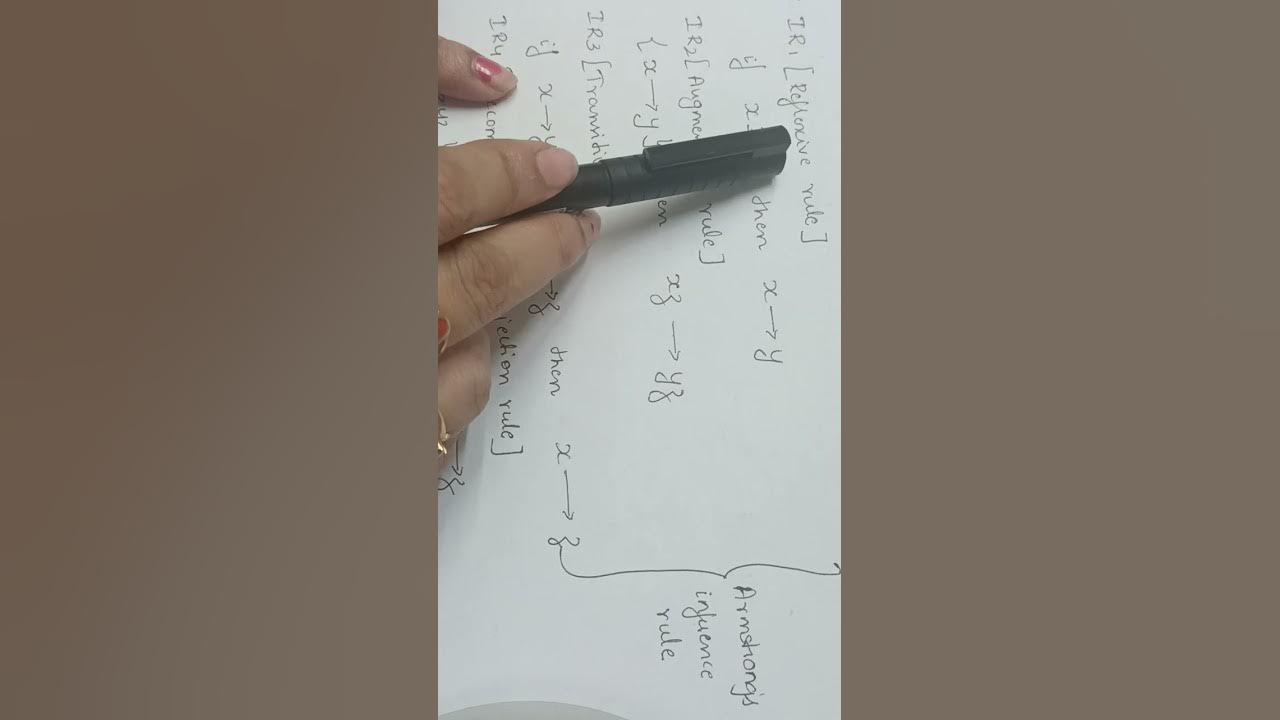 IR1 [Reflexive rule]
if x then x → y
IR2 [Augme rule]
{x → y} en xz → yz
IR3 [Transiti
if x → y → z then x → z
IR4 jection rule]
→ z
Armstrong's
infuence
rule